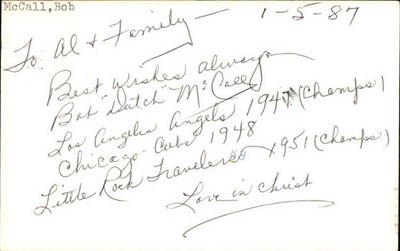 McCall,Bob
1-5-87
To Al & Family -
Best wishes always
Bob "Dutch" McCall
Los Angeles Angels 1947 (Champs)
Chicago Cubs 1948
Little Rock Travelers 1951 (Champs)
Love in Christ